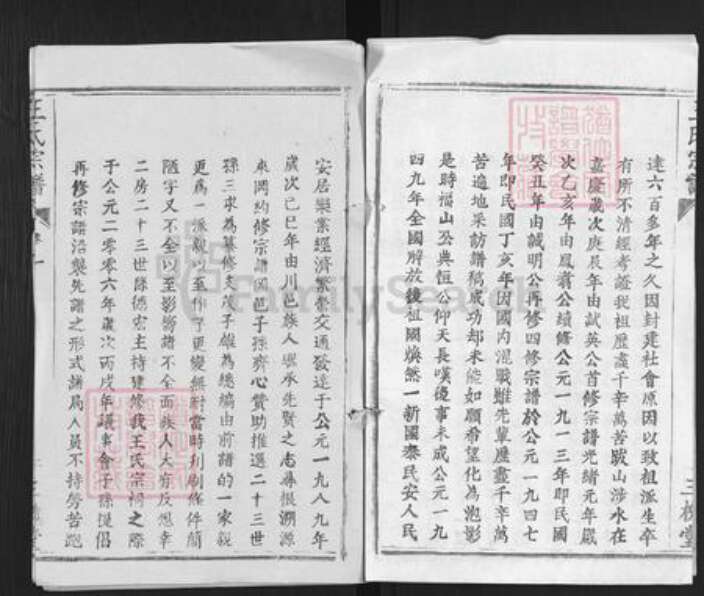 達六百多年之久因封建社會原因以致祖派生卒
有所不清經考證我祖歷盡千辛萬苦跋山涉水在
嘉慶歲次庚辰年由試英公首修宗譜光緒元年歲
次乙亥年由鳳翥公續修公元一九一三年即民國
癸丑年由誠明公再修四修宗譜於公元一九四七
年即民國丁亥年因國内混戰雖先輩歷盡千辛萬
苦遍地采訪譜稿成功却未能如願希望化為泡影
是時福山公典恒公仰天長嘆優事未成公元一九
四九年全國解放後祖國煥然一新國泰民安人民
王氏宗譜
三槐堂
安居樂業經濟繁榮交通發達于公元一九八九年
歲次己巳年由川邑族人繼承先賢之志尋根溯源
來岡約修宗譜岡邑子孫齊心贊助推選二十三世
孫三求為纂修支茂子雄為總編由前譜的一家親
更為一派親以至作了更變無耐當時刊刷條件簡
陋字又不全以至影響譜不全面族人大有反想幸
二房二十三世孫德宏主持建修我王氏宗祠之際
于公元二零零六年歲次丙戌年議事會子孫提倡
再修宗譜沿襲先譜之形式譜局人員不持勞苦跑
王氏宗譜
卷一
三槐堂
FamilySearch